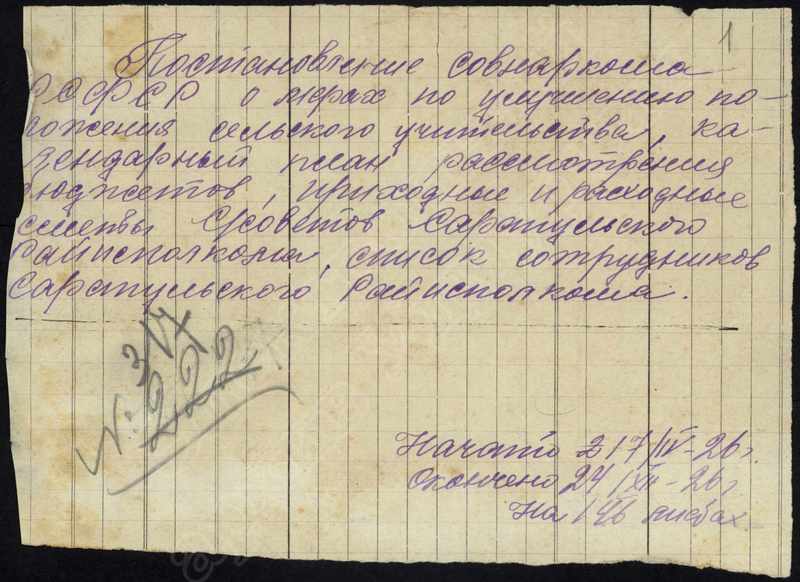 1
Постановление совнаркома
РСФСР о мерах по улучшению по-
ложения сельского учительства, ка-
лендарный план рассмотрения
бюджетов, приходные и расходные
сметы С/советов Сарапульского
Райисполкома, список сотрудников
Сарапульского Райисполкома.
N: 222
Начато 17/IV-26 г.
Окончено 24/XII-26 г.
На листах.